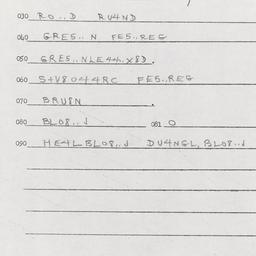 030 RO..D RU4ND
040 GRES..N FES..REG
050 GRES..NLE44.X8D.
060 S+V8044RC FES..REG
070 BRU8N .
080 BLO8..J 081 O
090 HE4L BLO8..J DU4NGL, BLO8..J